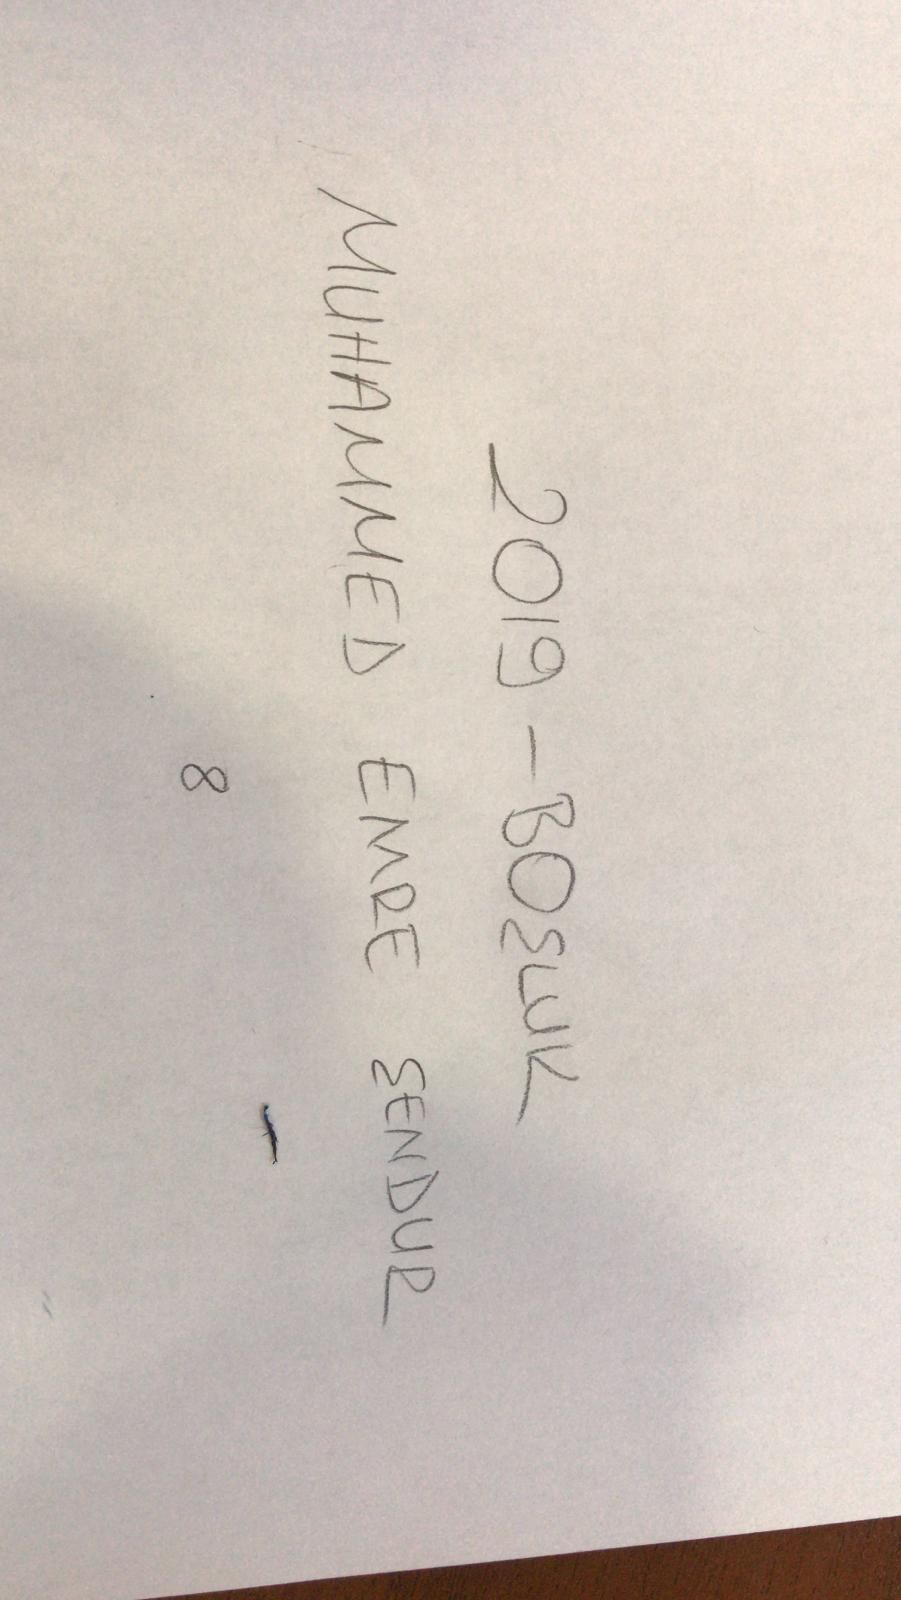 2019 - BOŞLUK
MUHAMMED EMRE ŞENDUR
8